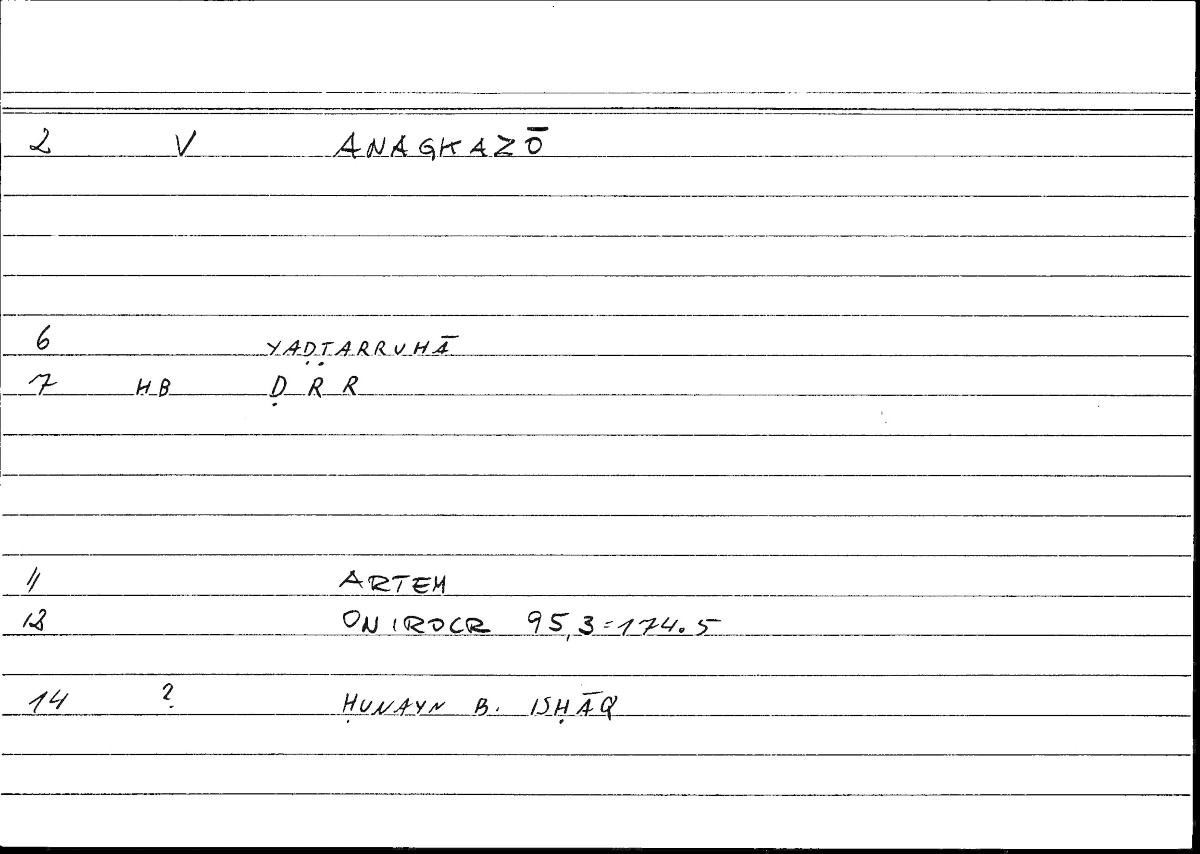 2 V ANAGKAZŌ
6 YAḌṬARRUHĀ
7 HB Ḍ R R
11 ARTEM
13 ONIROCR 95,3=174.5
14 ? ḤUNAYN B. ISḤĀQ